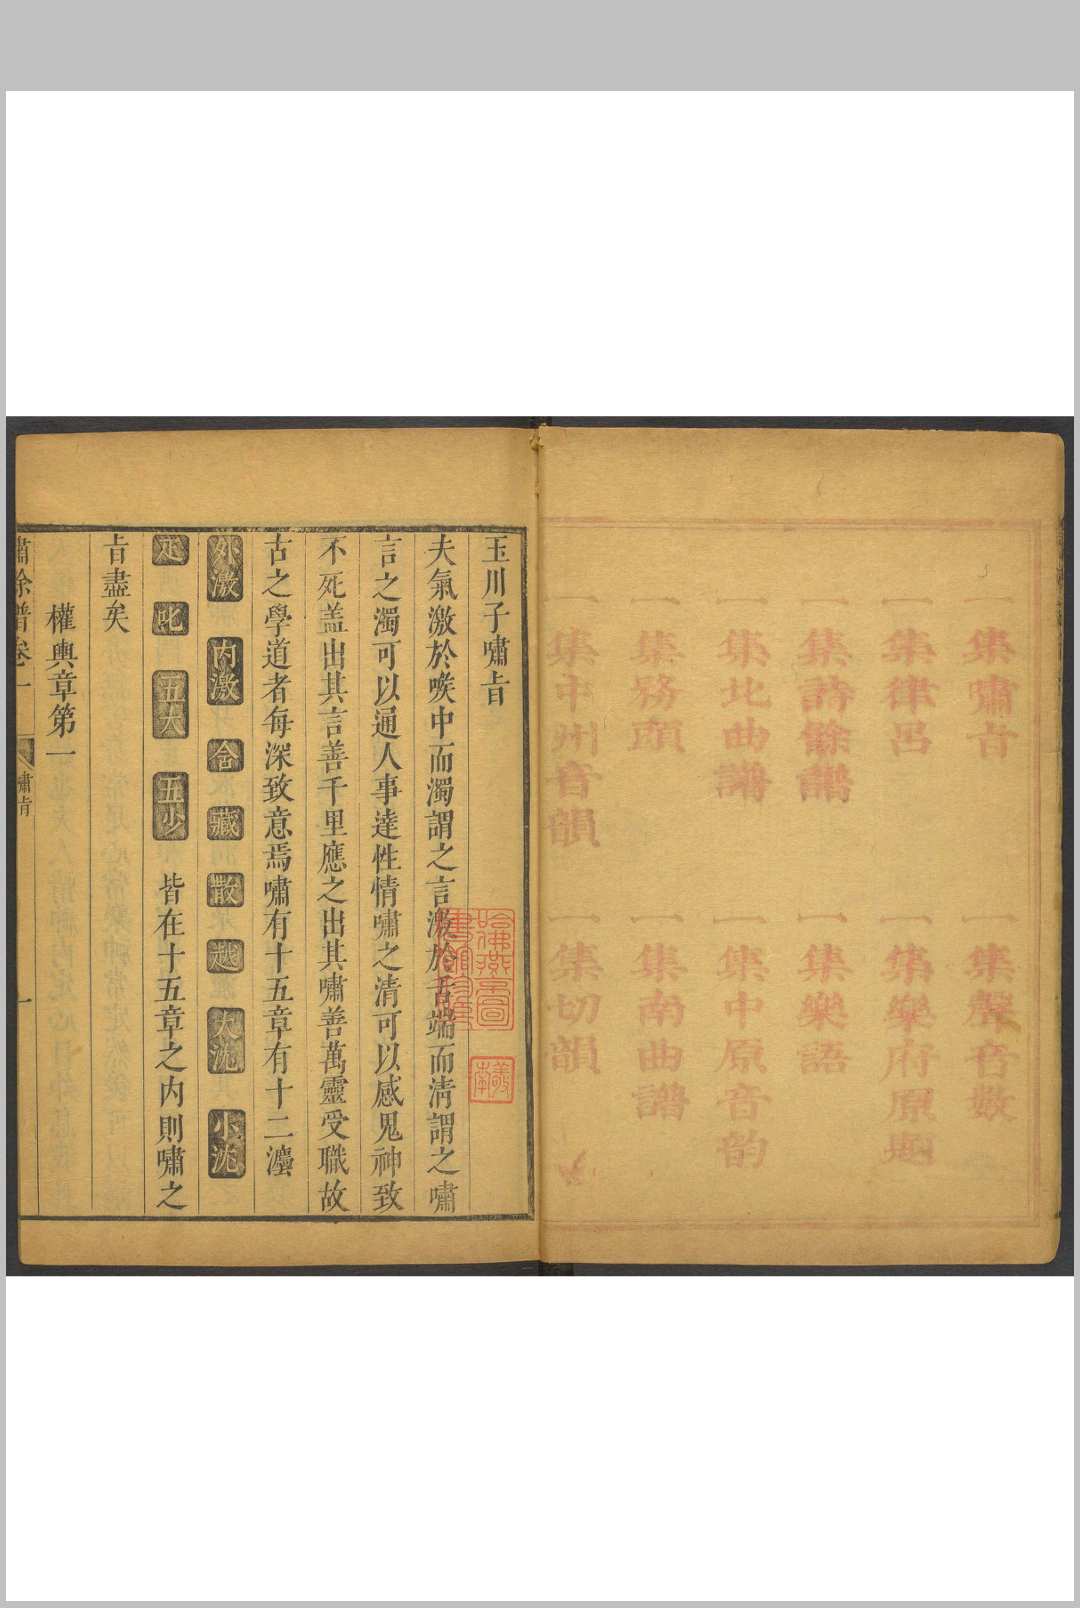 一集嘯旨
一集聲音數
一集律呂
一集樂府原題
一集詩餘譜
一集樂語
集北曲譜
一集中原音韵
一集務頭
一集南曲譜
一集中州音韻
一集切韻
玉川子嘯旨
夫氣激於喉中而濁謂之言激於舌端而淸謂之嘯
言之濁可以通人事達性情嘯之清可以感鬼神致
不死盖出其言善千里應之出其嘯善萬靈受職故
古之學道者每深致意焉嘯有十五章有十二灋
外激 内激 含 藏 散 越 大沈 小沈
疋 叱 五太 五少 皆在十五章之内則嘯之
旨盡矣
權輿章第一
嘯餘譜卷一 嘯旨 一
哈佛燕京圖書館